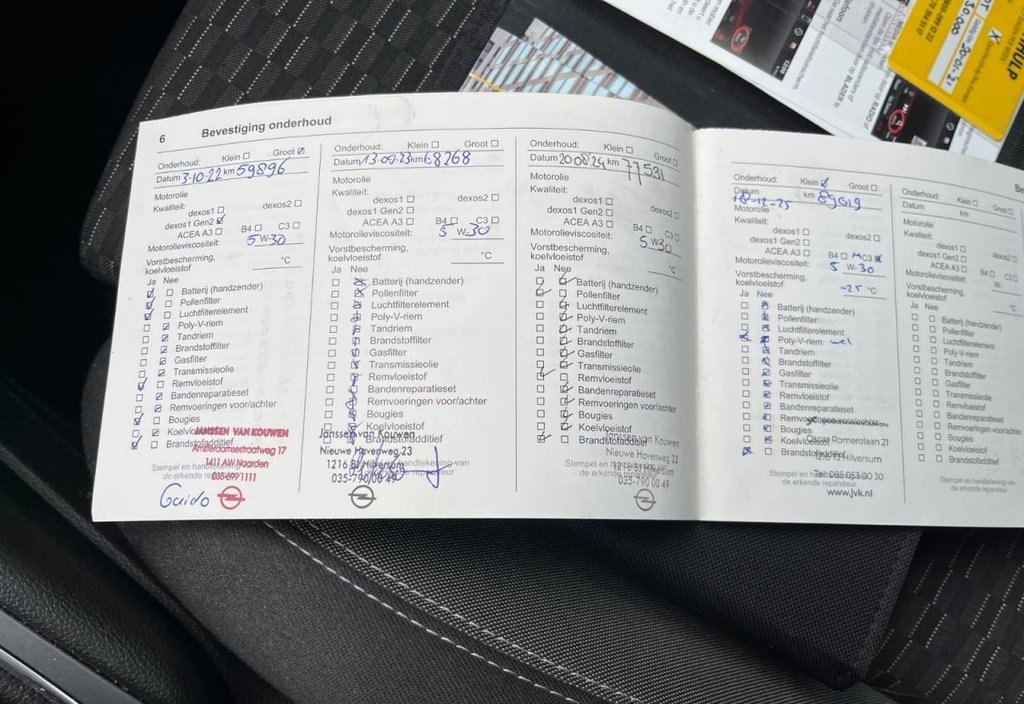 6 Bevestiging onderhoud
Onderhoud: Klein Groot
Datum 3-10-22 km 59896
Motorolie
Kwaliteit:
dexos1 dexos2
dexos1 Gen2
ACEA A3 B4 C3
Motorolieviscositeit: 5 W-30
Vorstbescherming,
koelvloeistof °C
Ja Nee
Batterij (handzender)
Pollenfilter
Luchtfilterelement
Poly-V-riem
Tandriem
Brandstoffilter
Gasfilter
Transmissieolie
Remvloeistof
Bandenreparatieset
Remvoeringen voor/achter
Bougies
Koelvloeistof
Brandstofadditief
JANSSEN VAN KOUWEN
Amsterdamsestraatweg 17
1411 AW Naarden
035-6991111
Stempel en handtekening van
de erkende reparateur
Guido
Onderhoud: Klein Groot
Datum 13-07-23 km 68268
Motorolie
Kwaliteit:
dexos1 dexos2
dexos1 Gen2
ACEA A3 B4 C3
Motorolieviscositeit: 5 W-30
Vorstbescherming,
koelvloeistof °C
Ja Nee
Batterij (handzender)
Pollenfilter
Luchtfilterelement
Poly-V-riem
Tandriem
Brandstoffilter
Gasfilter
Transmissieolie
Remvloeistof
Bandenreparatieset
Remvoeringen voor/achter
Bougies
Koelvloeistof
Brandstofadditief
Janssen van Kouwen
Nieuwe Havenweg 23
1216 BL Hilversum
035-790 00 49
Onderhoud: Klein Groot
Datum 20 08 24 km 77531
Motorolie
Kwaliteit:
dexos1 dexos2
dexos1 Gen2
ACEA A3 B4 C3
Motorolieviscositeit: 5 W 30
Vorstbescherming,
koelvloeistof °C
Ja Nee
Batterij (handzender)
Pollenfilter
Luchtfilterelement
Poly-V-riem
Tandriem
Brandstoffilter
Gasfilter
Transmissieolie
Remvloeistof
Bandenreparatieset
Remvoeringen voor/achter
Bougies
Koelvloeistof
Brandstofadditief
Janssen van Kouwen
Nieuwe Havenweg 23
1216 BL Hilversum
035-790 00 49
Onderhoud: Klein Groot
Datum 18-12-25 km 89619
Motorolie
Kwaliteit:
dexos1 dexos2
dexos1 Gen2
ACEA A3 B4 C3
Motorolieviscositeit: 5 W-30
Vorstbescherming,
koelvloeistof -25 °C
Ja Nee
Batterij (handzender)
Pollenfilter
Luchtfilterelement
Poly-V-riem wel
Tandriem
Brandstoffilter
Gasfilter
Transmissieolie
Remvloeistof
Bandenreparatieset
Remvoeringen
Bougies
Koelvloeistof
Brandstofadditief
Oscar Romerolaan 21
Hilversum
Tel: 085 053 00 30
www.jvk.nl
Onderhoud:
Datum km
Motorolie
Kwaliteit:
dexos1
dexos1 Gen2
ACEA A3 B4 C3
Motorolieviscositeit: W-
Vorstbescherming,
koelvloeistof
Ja Nee
Batterij (handzender)
Pollenfilter
Luchtfilterelement
Poly-V-riem
Tandriem
Brandstoffilter
Gasfilter
Transmissieolie
Remvloeistof
Bandenreparatieset
Remvoeringen voor/achter
Bougies
Koelvloeistof
Brandstofadditief
Stempel en handtekening van
de erkende reparateur
HULP
20-01-21